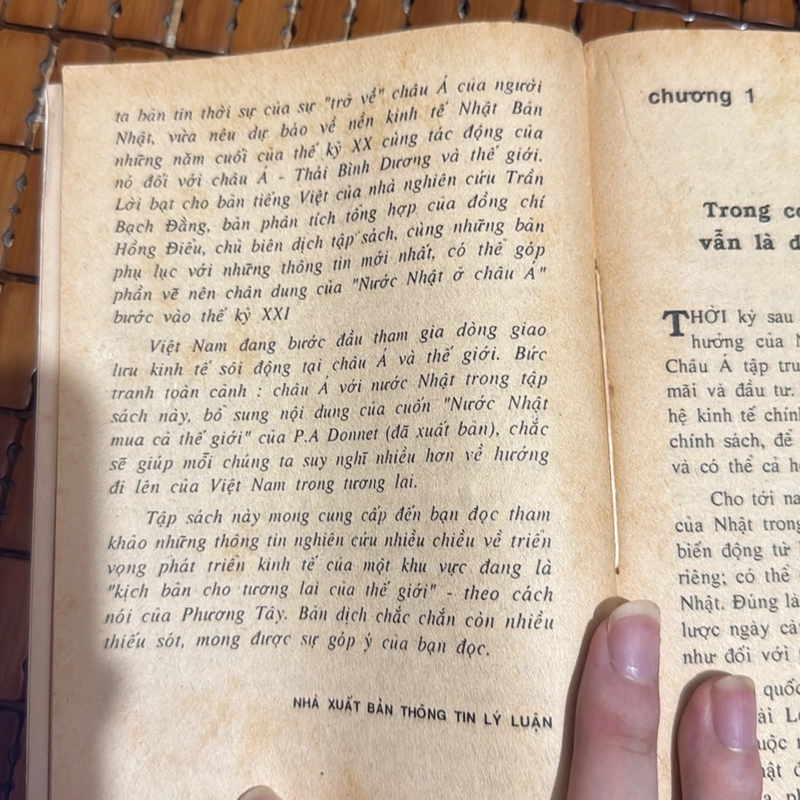 ta bản tin thời sự của sự "trở về" châu Á của người
Nhật, vừa nêu dự báo về nền kinh tế Nhật Bản
những năm cuối của thế kỷ XX cùng tác động của
nó đối với châu Á - Thái Bình Dương và thế giới.
Lời bạt cho bản tiếng Việt của nhà nghiên cứu Trần
Bạch Đằng, bản phân tích tổng hợp của đồng chí
Hồng Điêu, chủ biên dịch tập sách, cùng những bản
phụ lục với những thông tin mới nhất, có thể góp
phần vẽ nên chân dung của "Nước Nhật ở châu Á"
bước vào thế kỷ XXI
Việt Nam đang bước đầu tham gia dòng giao
lưu kinh tế sôi động tại châu Á và thế giới. Bức
tranh toàn cảnh : châu Á với nước Nhật trong tập
sách này, bổ sung nội dung của cuốn "Nước Nhật
mua cả thế giới" của P.A Donnet (đã xuất bản), chắc
sẽ giúp mỗi chúng ta suy nghĩ nhiều hơn về hướng
đi lên của Việt Nam trong tương lai.
Tập sách này mong cung cấp đến bạn đọc tham
khảo những thông tin nghiên cứu nhiều chiều về triển
vọng phát triển kinh tế của một khu vực đang là
"kịch bản cho tương lai của thế giới" - theo cách
nói của Phương Tây. Bản dịch chắc chắn còn nhiều
thiếu sót, mong được sự góp ý của bạn đọc.
NHÀ XUẤT BẢN THÔNG TIN LÝ LUẬN
chương 1
Trong
vẫn là
THỜI kỳ sau
hưởng của
Châu Á tập
mãi và đầu tư.
hệ kinh tế
chính sách, để
và có thể cả
Cho tới
của Nhật trong
biến động từ
riêng; có thể
Nhật. Đúng là
lược ngày
như đối với
quốc